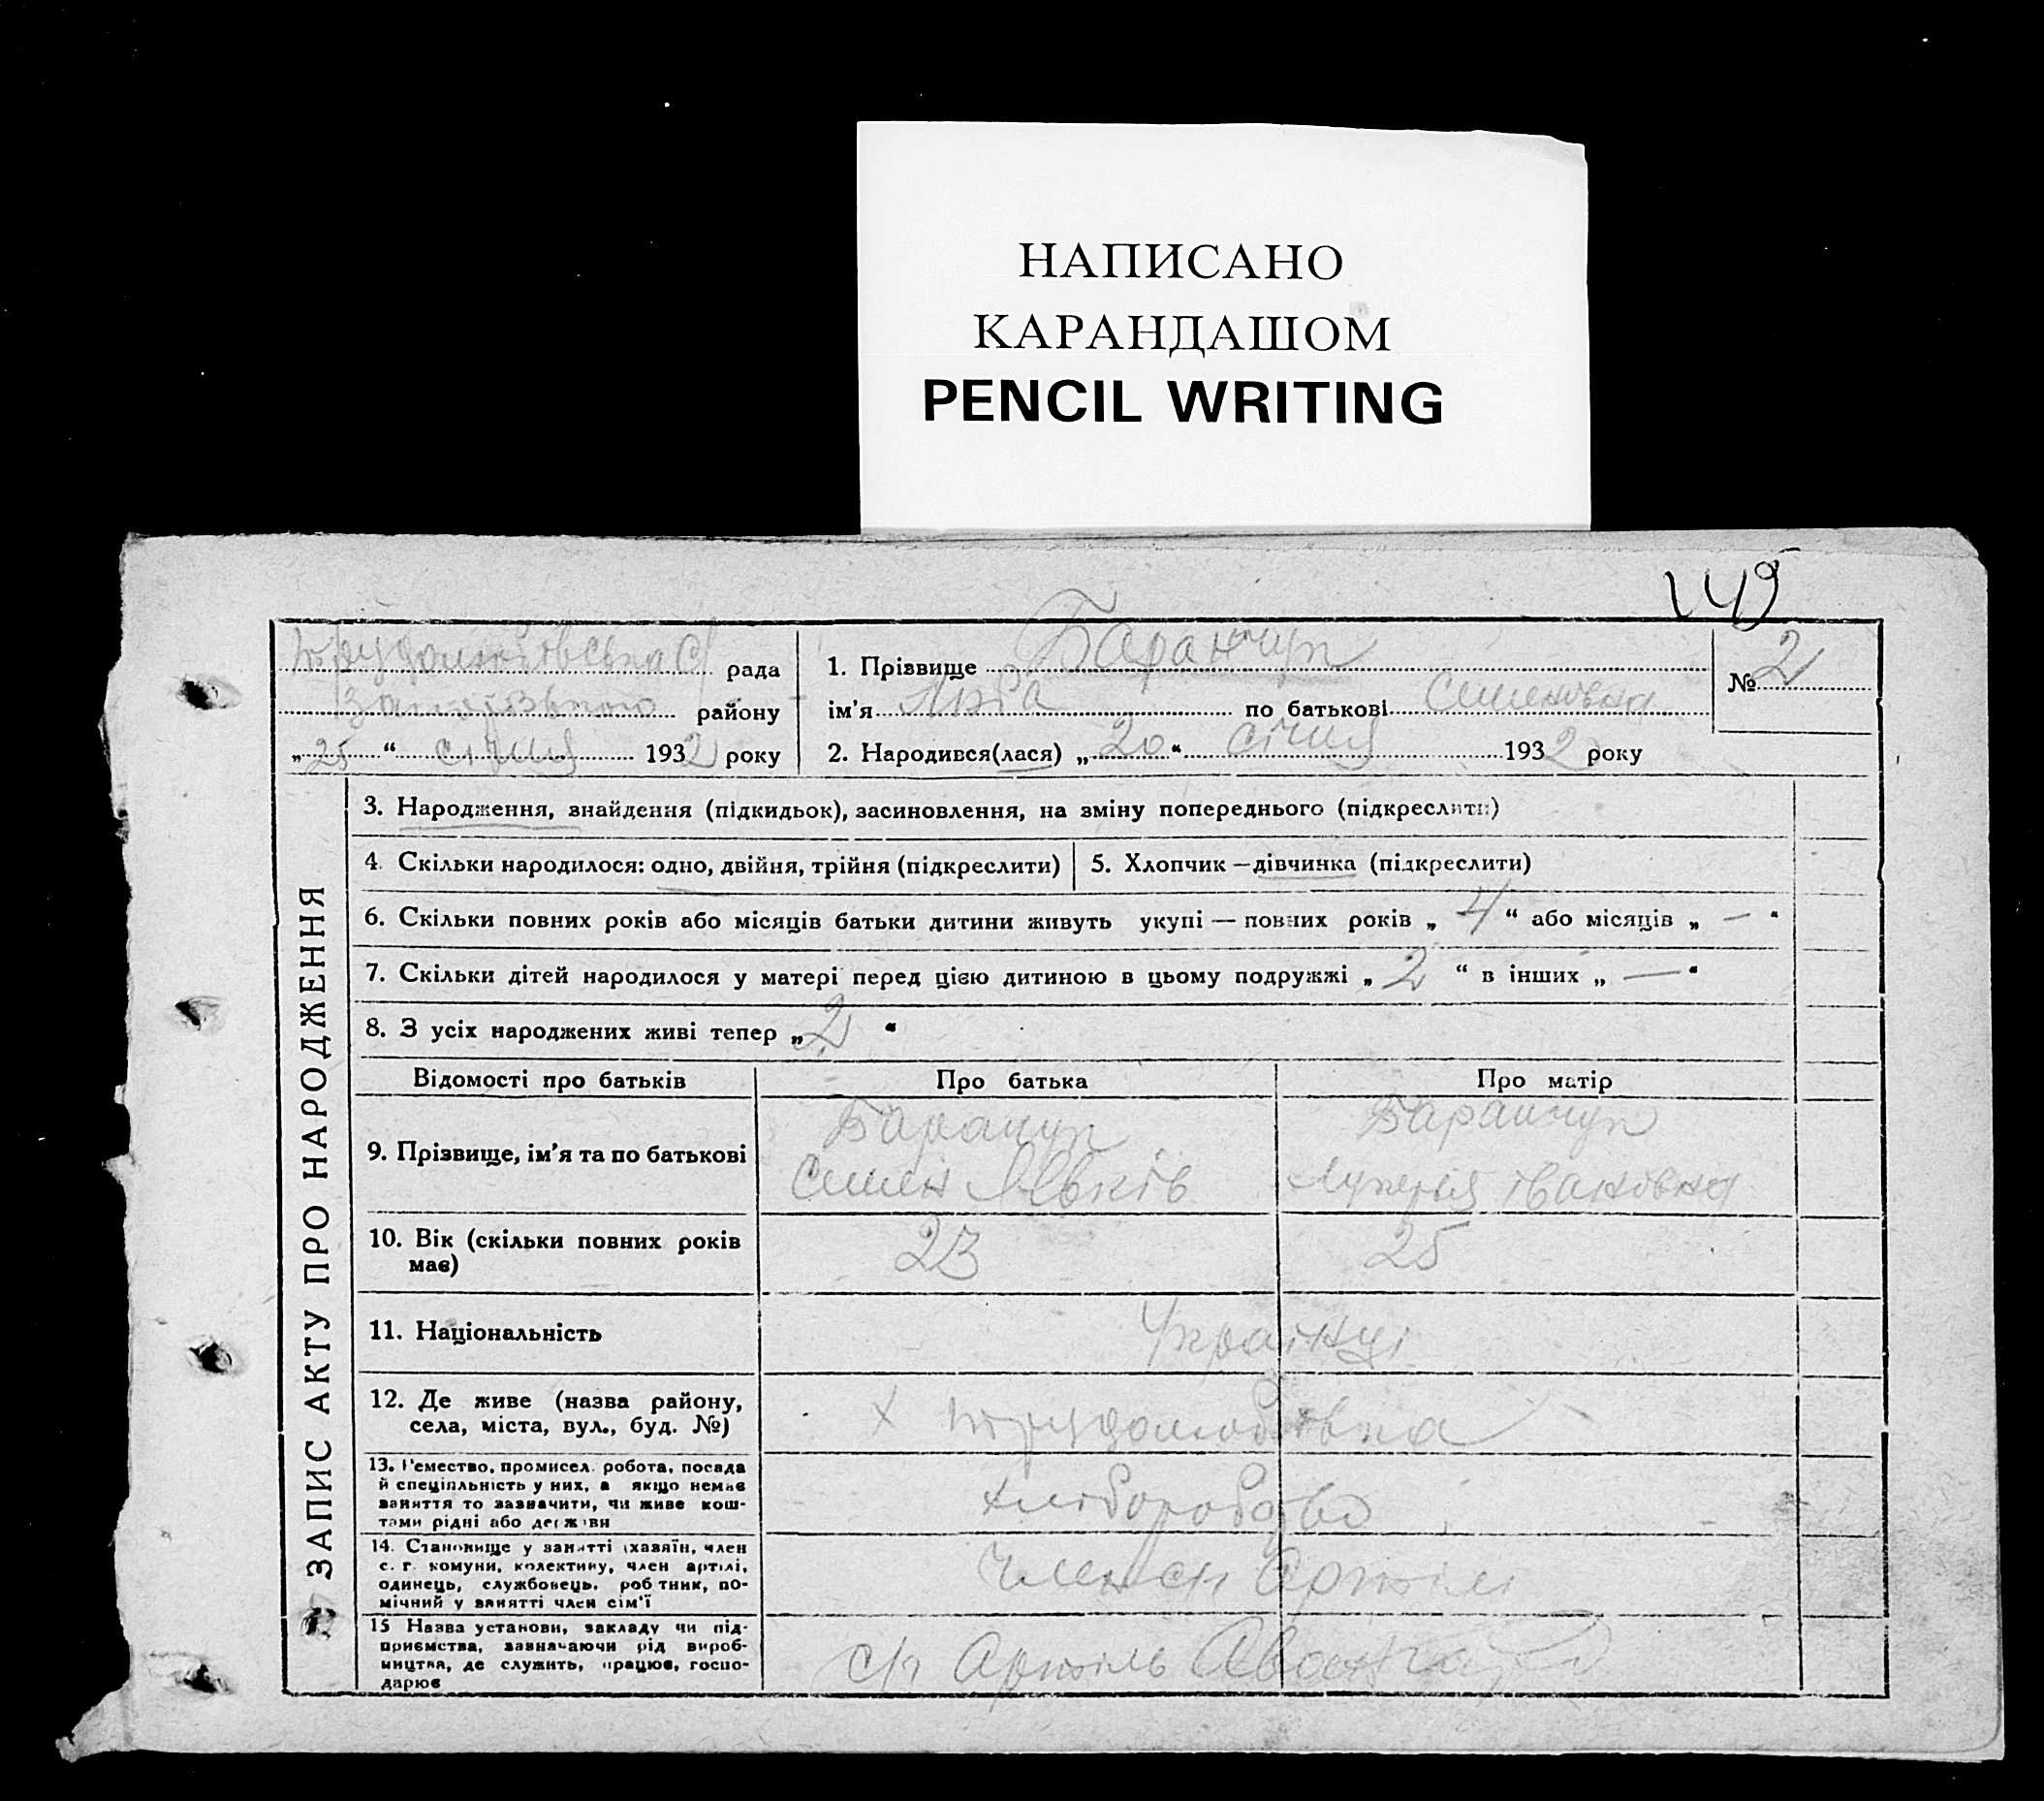 НАПИСАНО
КАРАНДАШОМ
PENCIL WRITING
149
Трудолюбовська С/ рада
району
„25“ січня 1932 року
1. Прізвище Баранчук
ім'я Люба по батькові Семенівна
№ 2
2. Народився(лася) „20“ січня 1932 року
ЗАПИС АКТУ ПРО НАРОДЖЕННЯ
3. Народження, знайдення (підкидьок), засиновлення, на зміну попереднього (підкреслити)
4. Скільки народилося: одно, двійня, трійня (підкреслити)
5. Хлопчик — дівчинка (підкреслити)
6. Скільки повних років або місяців батьки дитини живуть укупі — повних років „4“ або місяців „—“
7. Скільки дітей народилося у матері перед цією дитиною в цьому подружжі „2“ в інших „—“
8. З усіх народжених живі тепер „2“
Відомості про батьків
Про батька
Про матір
9. Прізвище, ім'я та по батькові
Баранчук
Семен
Баранчук
Івановна
10. Вік (скільки повних років
має)
23
25
11. Національність
Українці
12. Де живе (назва району,
села, міста, вул., буд. №)
х Трудолюбовка
13. Ремество, промисел, робота, посада
й спеціяльність у них, а якщо немає
заняття то зазначити, чи живе кош-
тами рідні або держави
хліборобство
14. Становище у занятті (хазяїн, член
с. г. комуни, колективу, член артілі,
одинець, службовець, робітник, по-
мічний у занятті член сім'ї
Член с/г Артілі
15 Назва установи, закладу чи під-
приємства, зазначаючи рід вироб-
ництва, де служить, працює, госпо-
дарює
с/г Артіль Авангард